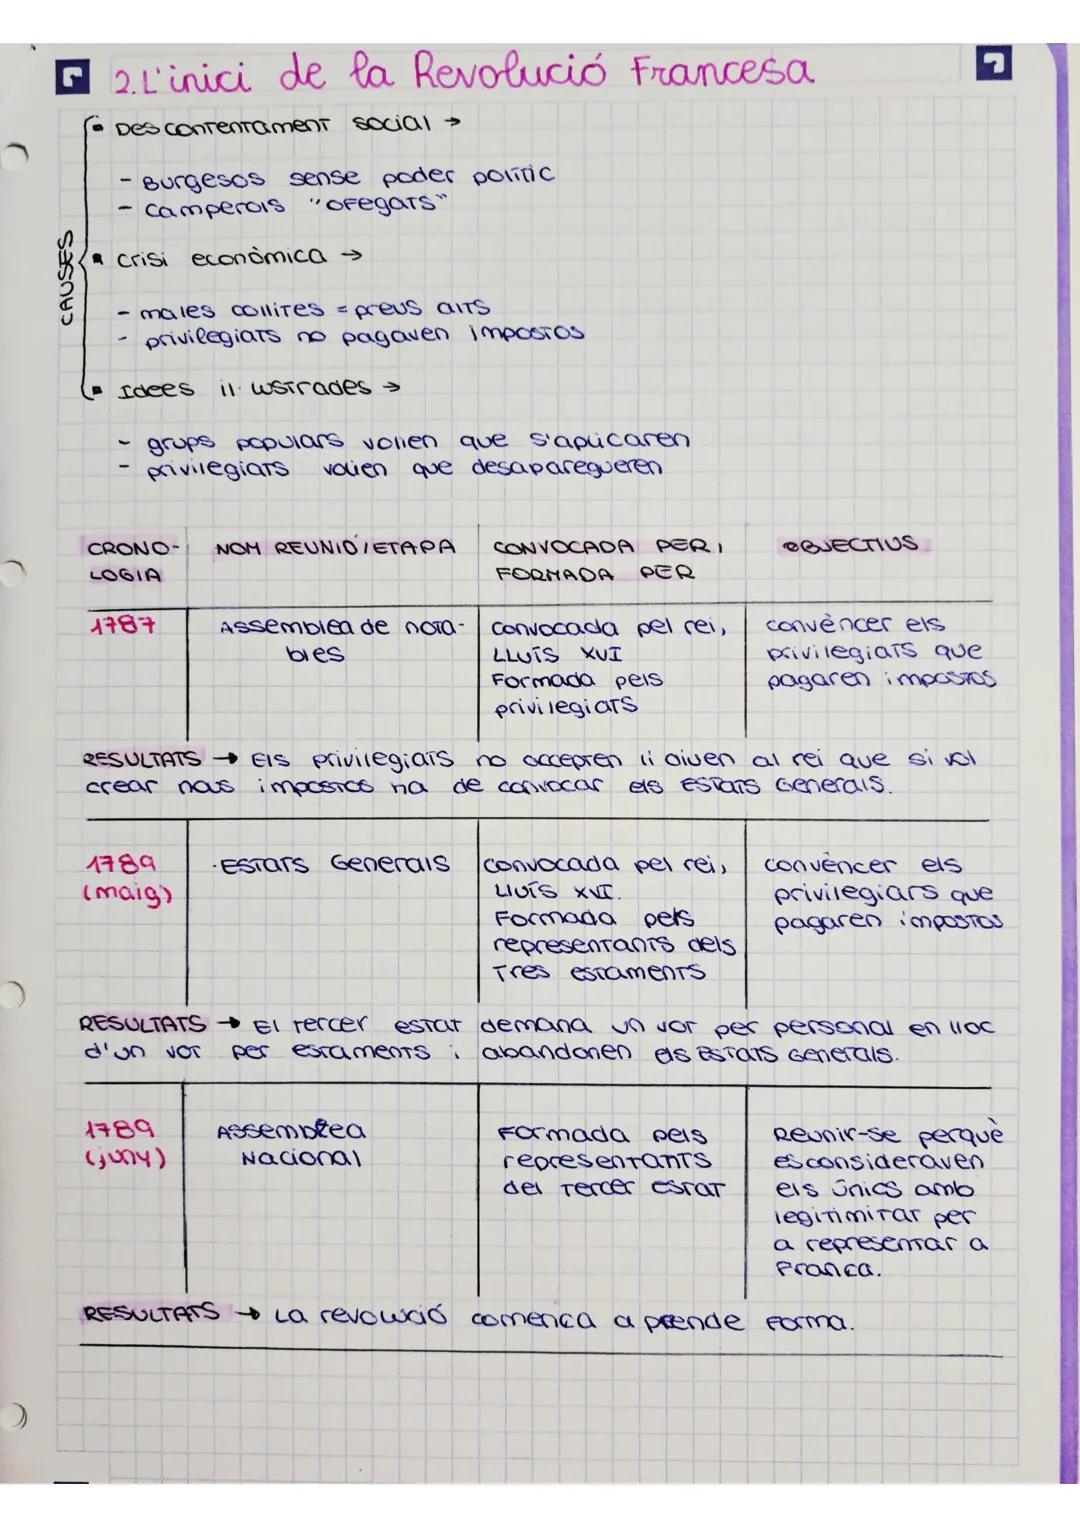 2. L'inici de la Revolució Francesa
Descontentament social →
- Burgesos sense poder polític
- Camperols "ofegats"
CAUSES
Crisi econòmica →
- males collites = preus alts
- privilegiats no pagaven impostos
Idees il·lustrades →
- grups populars volien que s'aplicaren
- privilegiats volien que desaparegueren
CRONO- NOM REUNIÓ/ETAPA CONVOCADA PER, OBJECTIUS
LOGIA FORMADA PER
1787 Assemblea de nota- Convocada pel rei, convèncer els
bles LLUÍS XVI privilegiats que
Formada pels pagaren impostos
privilegiats
RESULTATS → Els privilegiats no accepten li diuen al rei que si vol
crear nous impostos ha de convocar els Estats Generals.
1789 · Estats Generals Convocada pel rei, convèncer els
(maig) Lluís XVI. privilegiats que
Formada pels pagaren impostos
representants dels
Tres estaments
RESULTATS → El tercer estat demana un vot per personal en lloc
d'un vot per estaments i abandonen els Estats Generals.
1789 Assemblea Formada pels Reunir-se perquè
(juny) Nacional representants es consideraven
del Tercer estat els únics amb
legitimitat per
a representar a
Franca.
RESULTATS → La revolució comenca a prende forma.